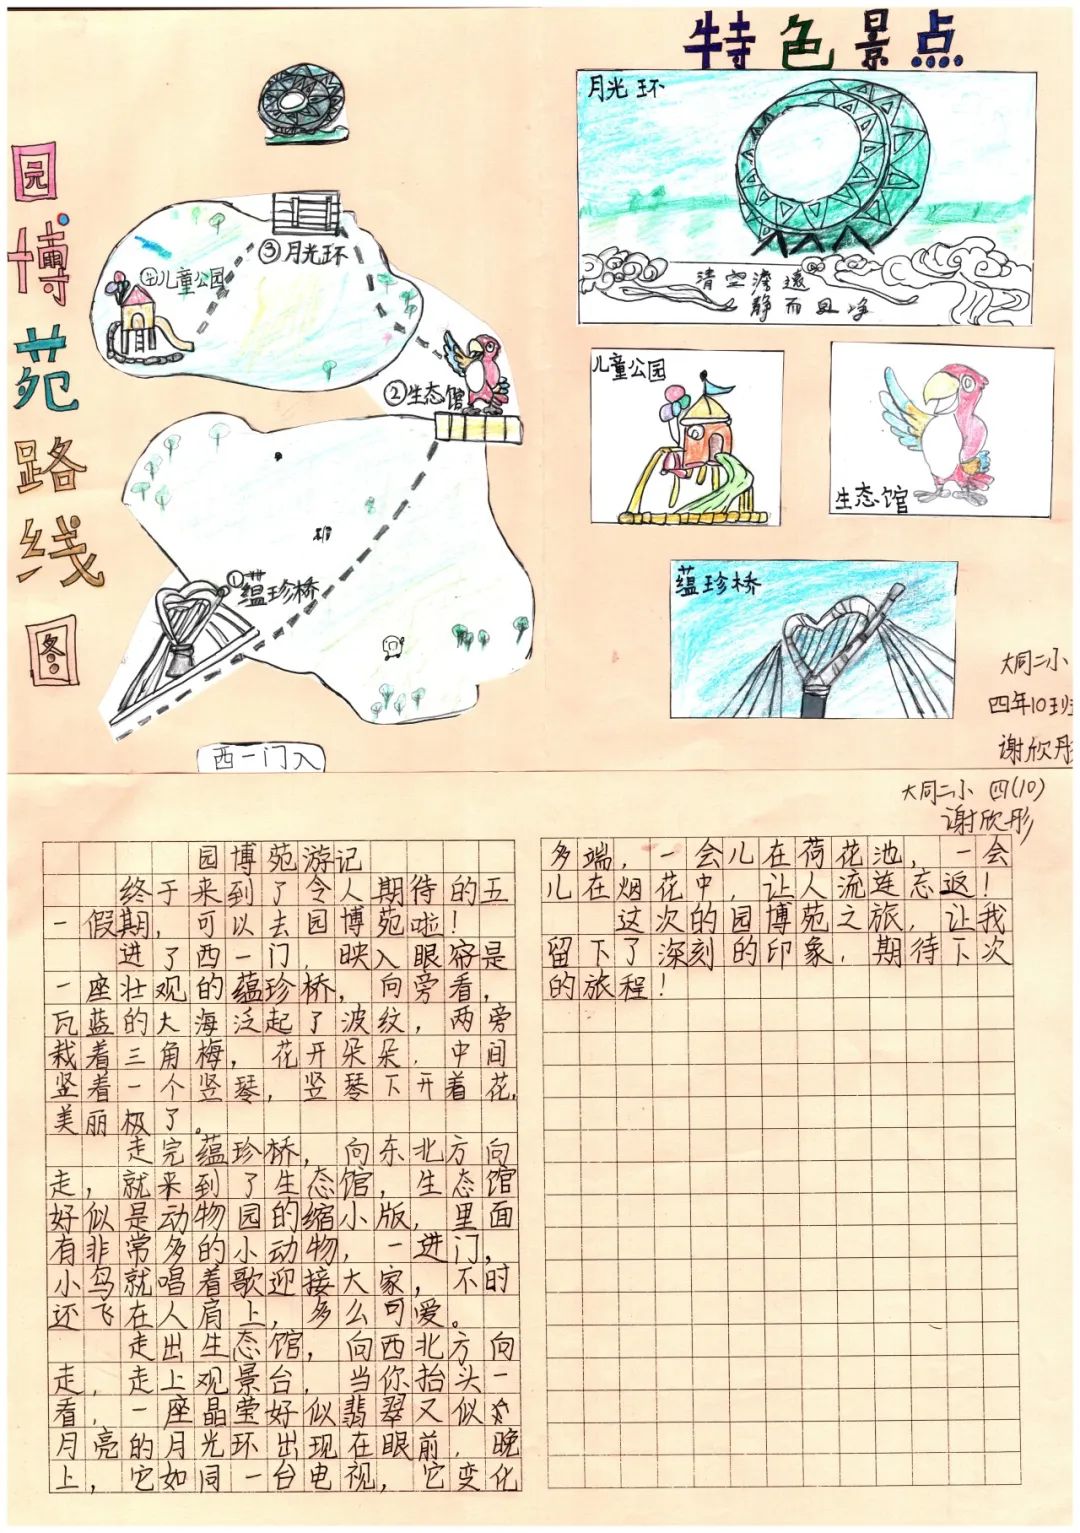 园博苑路线图
③月光环
④儿童公园
②生态馆
①蕴珍桥
西一门入
特色景点
月光环
清空澹远
静而且净
儿童公园
生态馆
蕴珍桥
大同二小
四年10班
谢欣彤
大同二小 四(10)
谢欣彤
园博苑游记
终于来到了令人期待的五
一假期，可以去园博苑啦！
进了西一门，映入眼帘是
一座壮观的蕴珍桥，向旁看，
瓦蓝的大海泛起了波纹，两旁
栽着三角梅，花开朵朵．中间
竖着一个竖琴，竖琴下开着花，
美丽极了。
走完蕴珍桥，向东北方向
走，就来到了生态馆，生态馆
好似是动物园的缩小版，里面
有非常多的小动物，一进门，
小鸟就唱着歌迎接大家，不时
还飞在人肩上，多么可爱。
走出生态馆，向西北方向
走，走上观景台，当你抬头一
看，一座晶莹好似翡翠又似
月亮的月光环出现在眼前．晚
上，它如同一台电视，它变化
多端，一会儿在荷花池，一会
儿在烟花中，让人流连忘返！
这次的园博苑之旅，让我
留下了深刻的印象，期待下次
的旅程！